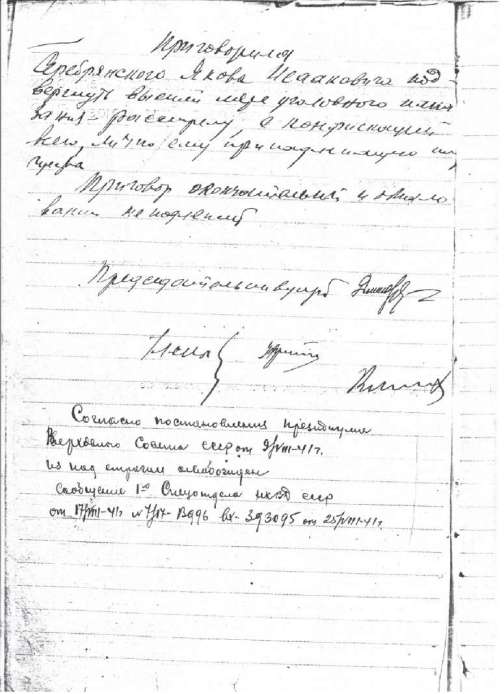 Приговорила
Серебрянского Якова Исааковича под-
вергнуть высшей мере уголовного нака
зания – расстрелу с конфискацией
всего, лично ему принадлежащего иму
щества
Приговор окончательный и обжало
ванию не подлежит
Председательствующий
Члены
Согласно постановления президиума
Верховного Совета СССР от 9/VIII-41г.
из под стражи освобожден
сообщение 1го Спецотдела НКВД СССР
от 17/VIII-41г вх- 393095 от 25/VIII-41г.